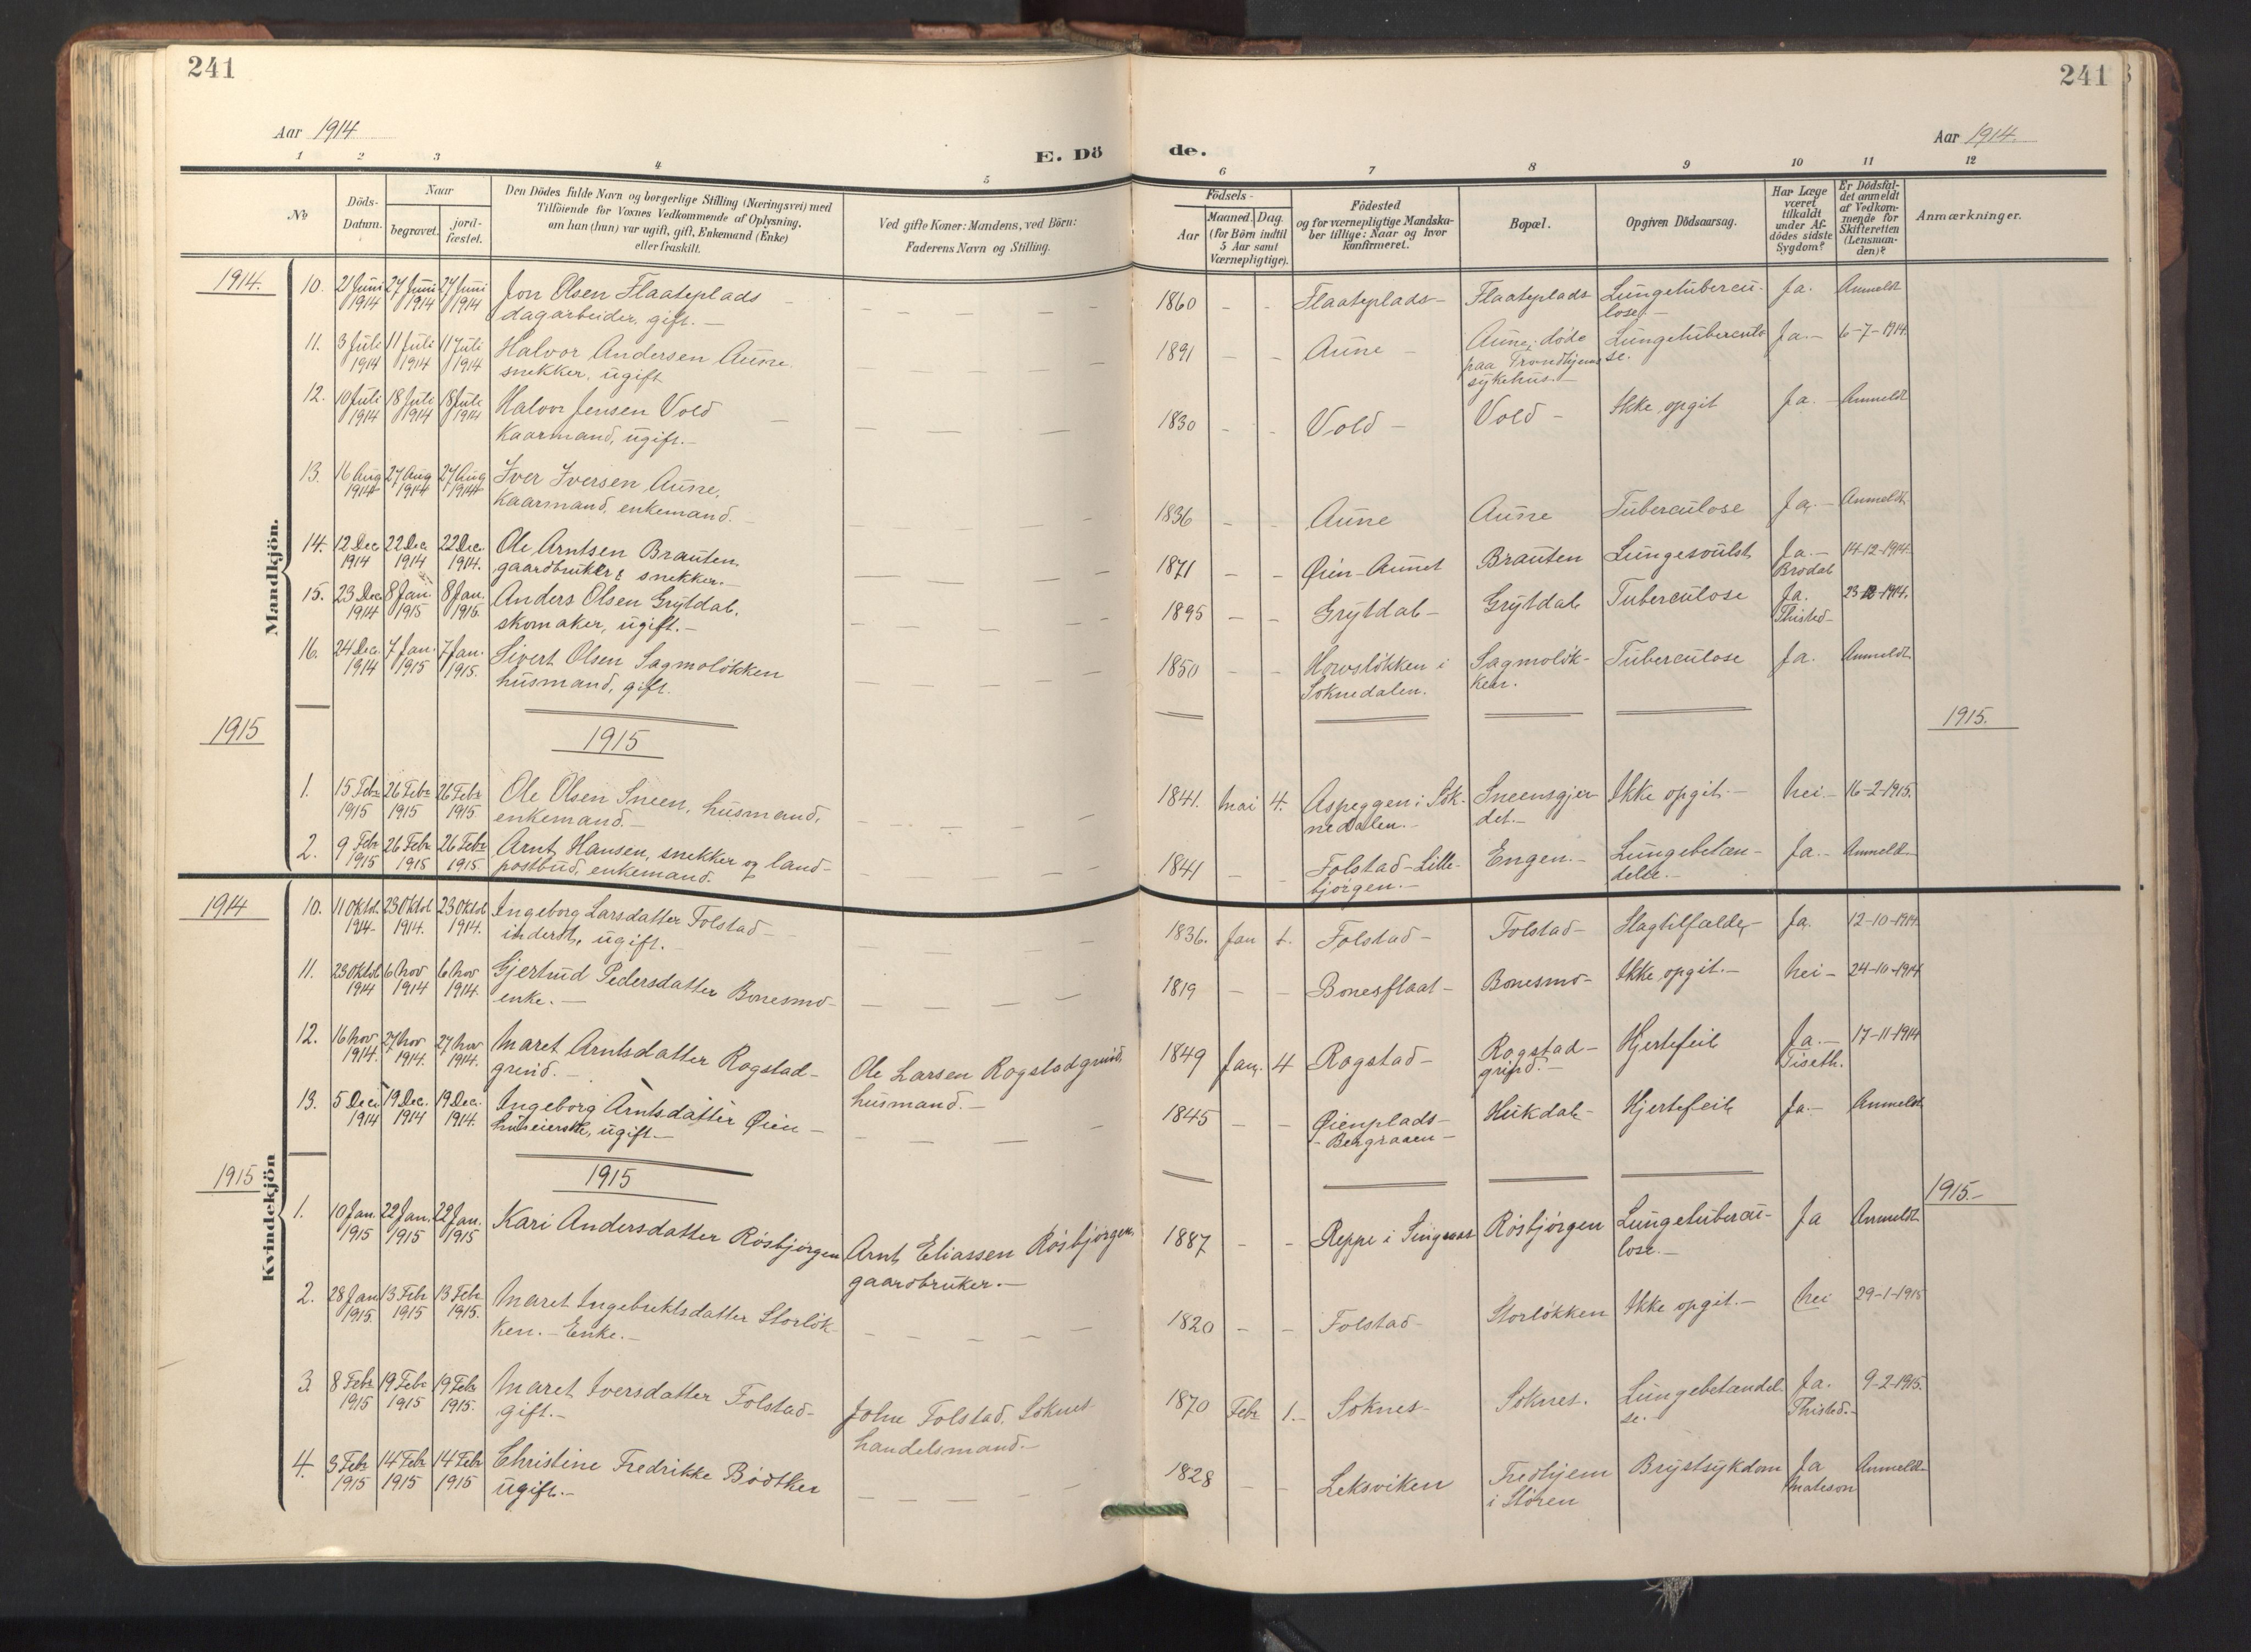 241
241
Aar 1914
Aar 1914.
E. Dö
de.
1 2 3 4 5 6 7 8 9 10 11 12
No
Döds-
Datum.
Naar
begravet.
jord-
fæstet.
Den Dödes fulde Navn og borgerlige Stilling (Næringsvei) med
Tilföiende for Voxnes Vedkommende af Oplysning,
om han (hun) var ugift, gift, Enkemand (Enke)
eller fraskilt.
Ved gifte Koner: Mandens, ved Börn:
Faderens Navn og Stilling.
Födsels-
Aar
Maaned. Dag.
(for Börn indtil
5 Aar samt
Værnepligtige).
Födested
og for værnepligtige Mandska-
ber tillige: Naar og hvor
konfirmeret.
Bopæl.
Opgiven Dödsaarsag.
Har Læge
været
tilkaldt
under Af-
dödes sidste
Sygdom?
Er Dödsfal-
det anmeldt
af Vedkom-
mende for
Skifteretten
(Lensman-
den)?
Anmærkninger.
Mandkjön.
1914.
10. 21 Juni 27 Juni 27 Juni Jon Olsen Flaateplads – 1860 – – Flaateplads – Flaateplads Lungetubercu- Ja. Anmeldt
1914 1914 1914 dagarbeider, gift. – lose. –
11. 3 Juli 11 Juli 11 Juli Halvor Andersen Aune. 1891 – – Aune – Aune, døde Lungetuberculo Ja. – 6-7-1914.
1914 1914 1914 snekker, ugift paa Trondhjems se.
sykehus. –
12. 10 Juli 18 Juli 18 Juli Halvor Jensen Vold – 1830 – – Vold – Vold – Ikke opgit Ja. – Anmeldt
1914 1914 1914 Kaarmand, ugift. –
13. 16 Aug 27 Aug 27 Aug Iver Iversen Aune, 1836 – – Aune Aune Tuberculose Ja. – Anmeldt.
1914 1914 1914 Kaarmand, enkemand.
14. 12 Dec 22 Dec 22 Dec. Ole Arntsen Brauten. 1871 – – Øien-Aunet Brauten Lungesvulst Ja. – 14-12-1914.
1914 1914 1914. gaardbruker & snekker. – Brodal
15. 23 Dec 8 Jan. 8 Jan. Anders Olsen Grytdal. 1895 – – Grytdal – Grytdal Tuberculose Ja. 23-12-1914.
1914 1915 1915. skomaker, ugift. – Thisted –
16. 24 Dec. 7 Jan. 7 Jan. Sivert Olsen Sagmoløkken 1850 – – Hovsløkken i Sagmoløk- Tuberculose Ja. Anmeldt
1914 1915 1915. husmand, gift. Soknedalen. ken.
1915
1915
1915.
1. 15 Febr 26 Febr 26 Febr Ole Olsen Sneen, husmand, 1841. Mai 4. Aspeggen i Sok- Sneensgjer- Ikke opgit. – Nei – 16-2-1915.
1915 1915 1915. enkemand. – nedalen. – det. –
2. 9 Feb 26 Febr 26 Febr Arnt Hansen, snekker og land- 1841 – – Folstad-Lille- Engen. – Lungebetæn- Ja. – Anmeldt
1915 1915 1915. postbud, enkemand. bjørgen. – delse. –
Kvindekjön
1914
10. 11 Oktob. 23 Oktob 23 Oktob Ingeborg Larsdatter Folstad – 1836. Jan Folstad – Folstad – Slagtilfælde, Ja. 12-10-1914.
1914. 1914. 1914. inderst, ugift.
11. 23 Oktob 6 Nov 6 Nov Gjertrud Pedersdatter Bonesmo – 1819 – – Bonesflaat – Bonesmo – Ikke opgit. – Nei – 24-10-1914
1914 1914 1914. enke. –
12. 16 Nov 27 Nov 27 Nov Maret Arntsdatter Rogstad- Ole Larsen Rogstadgrind, 1849 Jan. 4 Rogstad – Rogstad- Hjertefeil Ja. – 17-11-1914
1914. 1914. 1914. grind. – husmand. – grind. – Tiseth.
13. 5 Dec. 19 Dec. 19 Dec. Ingeborg Arntsdatter Øien – 1845 – – Øienplads- Hukdal – Hjertefeil Ja. – Anmeldt
1914 1914 1914. huseierske, ugift. – – Bergraaen –
1915
1915
1915. –
1. 10 Jan. 22 Jan. 22 Jan. Kari Andersdatter Røsbjørgen Arnt Eliassen Røsbjørgen, 1887 – – Reppe i Singsaas Røsbjørgen Lungetubercu- Ja Anmeldt
1915 1915 1915 gaardbruker. – lose. –
2. 28 Jan 13 Feb 13 Feb. Maret Ingebriktsdatter Storløk- 1820 – – Folstad – Storløkken Ikke opgit. – Nei 29-1-1915
1915. 1915 1915. ken. – Enke. –
3 8 Febr 19 Febr 19 Febr Maret Iversdatter Folstad – John Folstad, Soknes 1870 Febr 1. – Soknes – Soknes. Lungebetændel- Ja. 9-2-1915.
1915 1915 1915. gift. – handelsmand. – se. – Thisted. –
4. 3 Febr 14 Febr 14 Febr Christine Fredrikke Bødtker 1828 – – Leksviken Fredhjem Brystsykdom Ja Anmeldt
1915 1915 1915 ugift. – i Støren